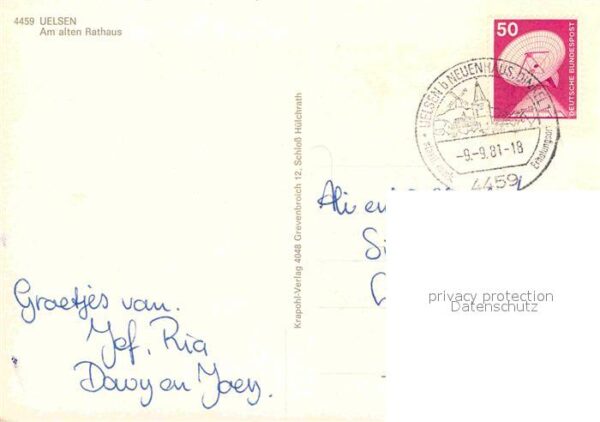 4459 UELSEN
Am alten Rathaus
50
DEUTSCHE BUNDESPOST
UELSEN b NEUENHAUS, DINKEL 1
-9.-9.81-18
Erholungsort
4459
Krapohl-Verlag 4048 Grevenbroich 12, Schloß Hülchrath
Ali en
Groetjes van.
Jef, Ria
Davy en Joey.
privacy protection
Datenschutz